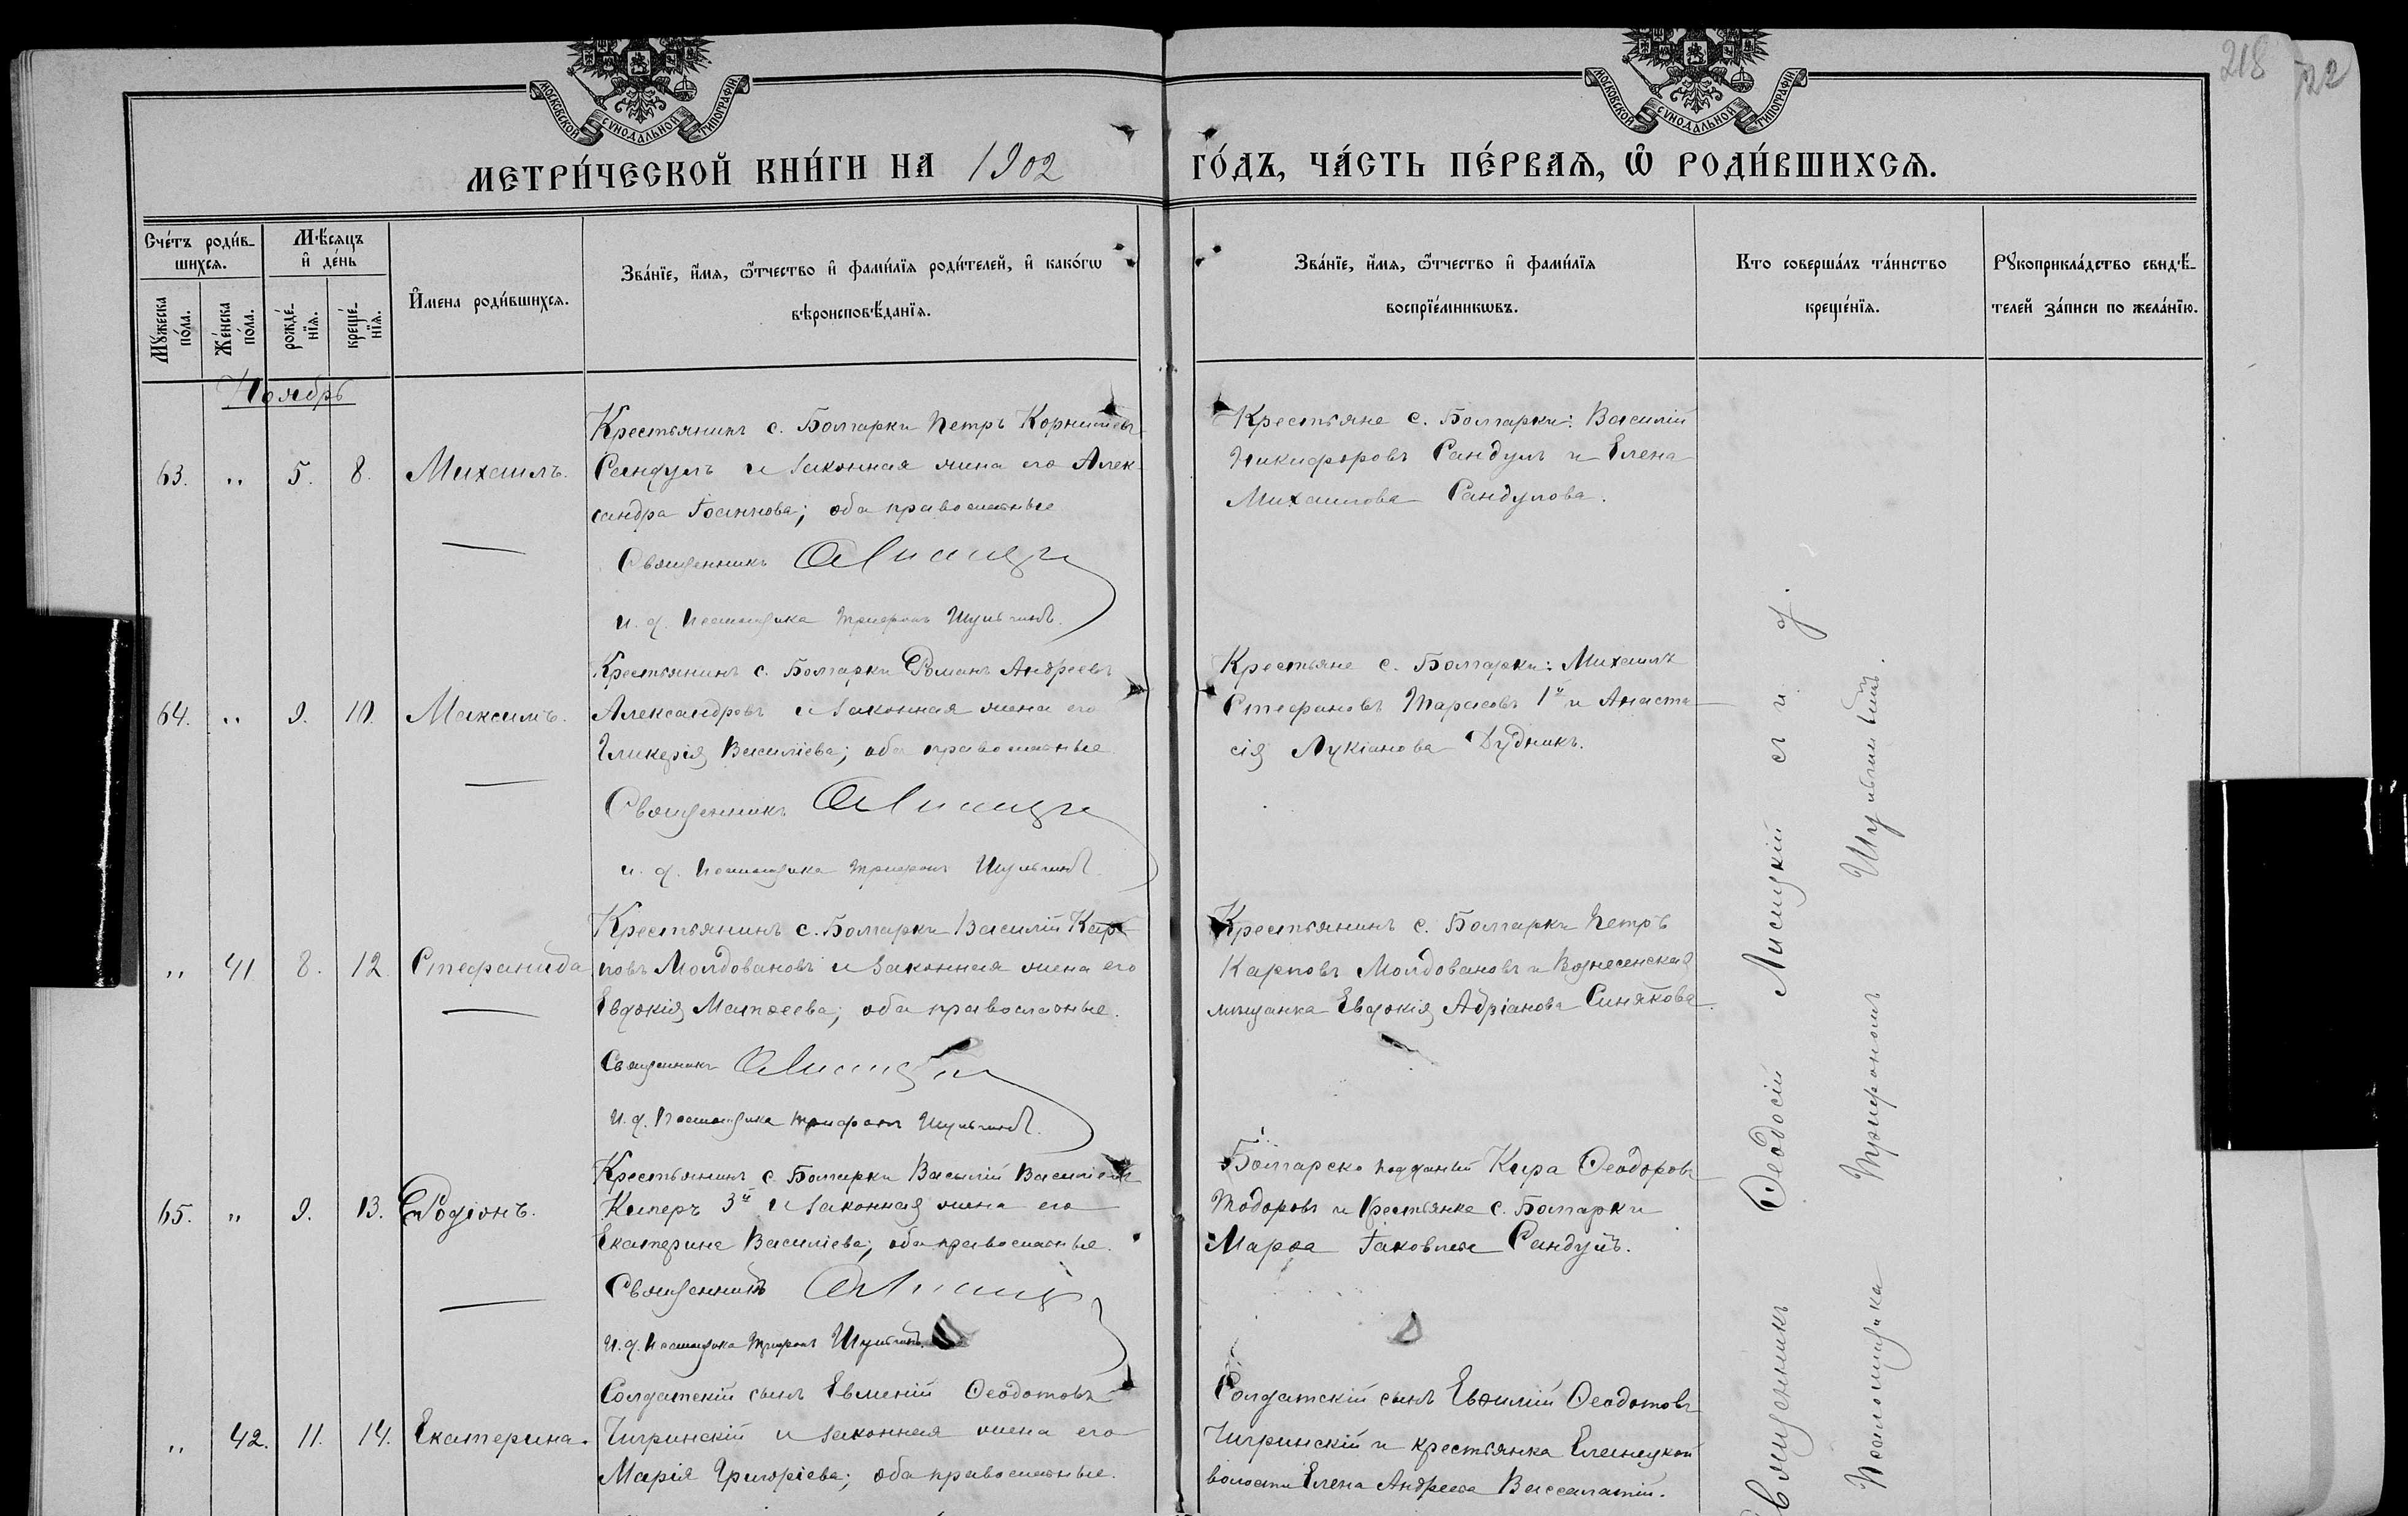 МОСКОВСКОЙ СѴНОДАЛЬНОЙ ТИПОГРАФІИ
МОСКОВСКОЙ СѴНОДАЛЬНОЙ ТИПОГРАФІИ
218
122
МЕТРИ́ЧЕСКОЙ КНИ́ГИ НА 1902
ГО́ДЪ, ЧА́СТЬ ПЕ́РВАѦ, Ѡ҆ РОДИ́ВШИХСѦ.
Сче́тъ роди́в-
шихсѧ.
Мꙋжеска
по́ла.
Же́нска
по́ла.
Мѣ́сѧцъ
и҆ де́нь
рожде́-
нїѧ.
креще́-
нїѧ.
И҆мена роди́вшихсѧ.
Зва́нїе, и҆́мѧ, ѻ҆́тчество и҆ фами́лїѧ роди́телей, и҆ како́гѡ
вѣроисповѣ́данїѧ.
Зва́нїе, и҆́мѧ, ѻ҆́тчество и҆ фами́лїѧ
воспрїе́мникѡвъ.
Кто соверша́лъ та́инство
креще́нїѧ.
Рꙋкоприкла́дство свидѣ́-
телей за́писи по жела́нїю.
Ноябрь
63. „ 5. 8. Михаилъ.
Крестьянинъ с. Болгарки Петръ Корнилievъ
Сандулъ и законная жена его Алек
сандра Іоаннова; оба православные
Священникъ Ѳ Лисицкій
и. д. псаломщика Трифонъ Шульгинъ.
Крестьяне с. Болгарки: Василій
Никифоровъ Сандулъ и Елена
Михаилова Сандулова.
64. „ 9. 10. Максимъ.
Крестьянинъ с. Болгарки Романъ Андреевъ
Александровъ и законная жена его
Гликерія Василіева; оба православные
Священникъ Ѳ Лисицкій
и. д. псаломщика Трифонъ Шульгинъ.
Крестьяне с. Болгарки: Михаилъ
Стефановъ Тарасовъ 1й и Анаста
сія Лукіанова Дудникъ.
„ 41 8. 12. Стефанида
Крестьянинъ с. Болгарки Василій Кар
повъ Молдовановъ и законная жена его
Евдокія Матѳеева; оба православные.
Священникъ Ѳ Лисицкій
и. д. псаломщика Трифонъ Шульгинъ.
Крестьянинъ с. Болгарки Петръ
Карповъ Молдовановъ и Вознесенская
мѣщанка Евдокія Адріанова Синякова.
65. „ 9. 13. Родіонъ.
Крестьянинъ с. Болгарки Василій Василіевъ
Киперъ 3й и законная жена его
Екатерина Василіева; оба православные.
Священникъ Ѳ Лисицкій
и. д. псаломщика Трифонъ Шульгинъ.
Болгарско подданый Кира Ѳеодоровъ
Тодоровъ и крестьянка с. Болгарки
Марѳа Іаковлева Сандулъ.
„ 42. 11. 14. Екатерина.
Солдатскій сынъ Евмений Ѳеодотовъ
Чигринскій и законная жена его
Марія Григоріева; оба православные.
Солдатскій сынъ Евѳимій Ѳеодотовъ
Чигринскій и крестьянка Еланецкой
волости Елена Андреева
Священникъ Ѳеодосій Лисицкій съ и. д.
Псаломщика Трифономъ